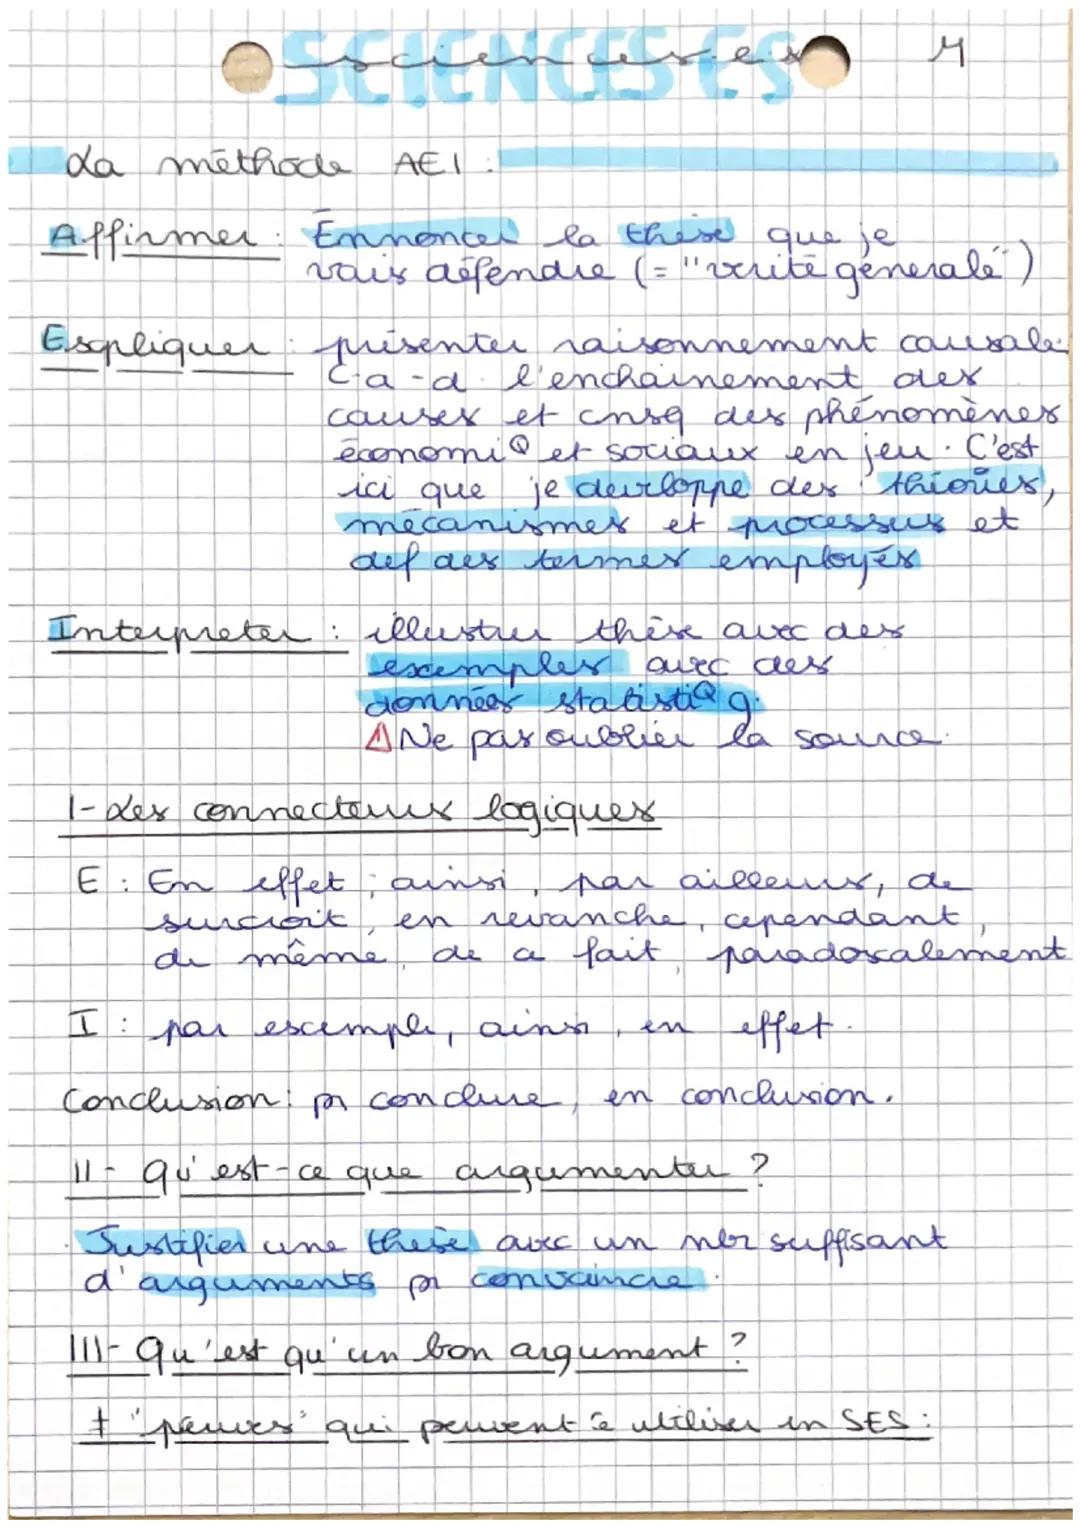 SCIENCES ES
sciences es
M
La méthode AEI :
Affirmer : Ennoncer la thèse que je
vais défendre (= "vérité générale")
Expliquer : présenter raisonnement causale
C-a-d l'enchaînement des
causes et cnsq des phénomènes
économiQ et sociaux en jeu. C'est
ici que je développe des théories,
mécanismes et processus et
def des termes employés
Interpreter : illustrer thèse avec des
exemples avec des
données statistiQ g.
⚠ Ne pas oublier la source.
I- Les connecteurs logiques
E : En effet ; ainsi, par ailleurs, de
surcroît, en revanche, cependant,
de même, de ce fait, paradoxalement
I : par exemple, ainsi, en effet.
Conclusion : pr conclure, en conclusion.
II- Qu'est-ce que argumenter ?
Justifier une thèse avec un nbr suffisant
d'arguments pr convaincre.
III- Qu'est qu'un bon argument ?
≠ "preuves" qui peuvent ê utiliser en SES :